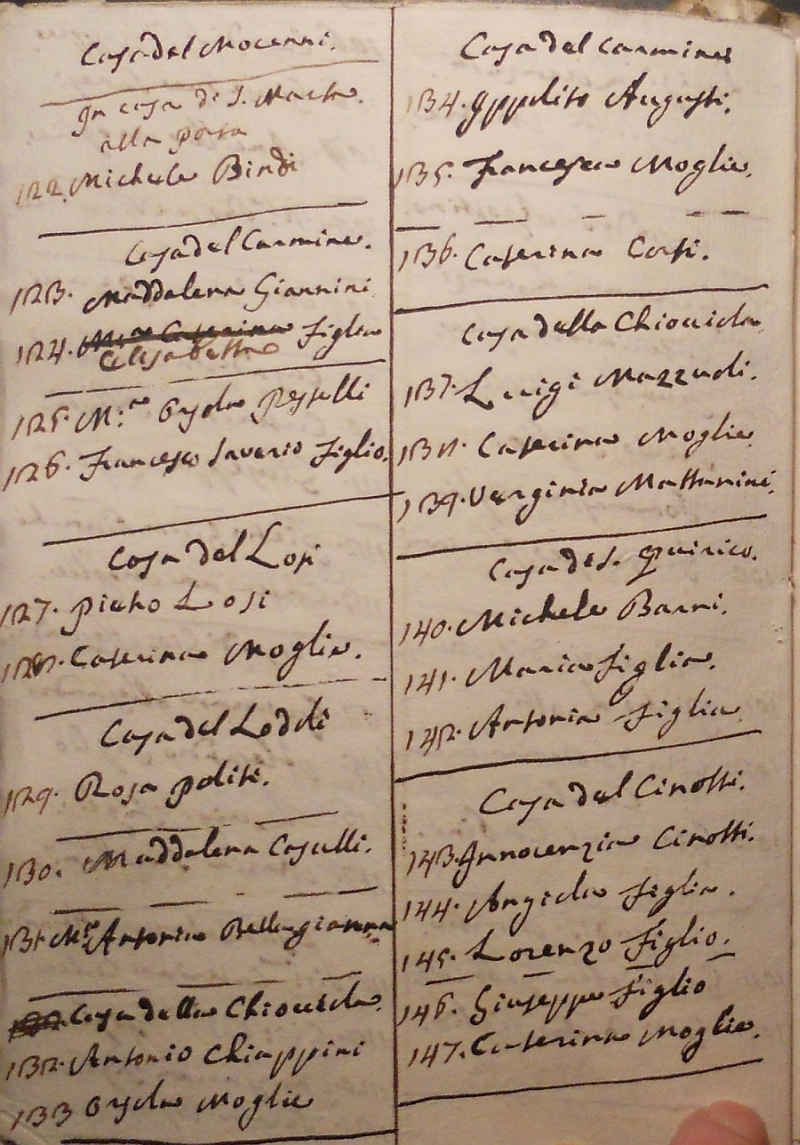 Casa del Mocenni.
In casa di S. Marta.
alla porta
122. Michele Bindi
Casa del Carmine.
123. Maddalena Giannini
124. Figlia
Elisabetta
125. M.ª Orsola
126. Francesco Saverio Figlio.
Casa del Losi
127. Pietro Losi
128. Caterina Moglie.
Casa del Loddi
129. Rosa Politi.
130. Maddalena Casulli.
131. Mª Antonia
Casa della Chiocciola.
132. Antonio Chiappini
133 Orsola Moglie
Casa del Carmine
134. Ippolito Augusti.
135. Francesca Moglie.
136. Caterina Corsi.
Casa della Chiocciola
137. Luigi Mazzuoli.
138. Caterina Moglie
139. Verginia Mattanini.
Casa di S. Quirico.
140. Michele Barni.
141. Maria figlia.
142. Antonia figlia
Casa del Cinotti.
143. Innocenzia Cinotti.
144. Angiola figlia.
145. Lorenzo Figlio.
146. Giuseppe Figlio
147. Caterina Moglie.